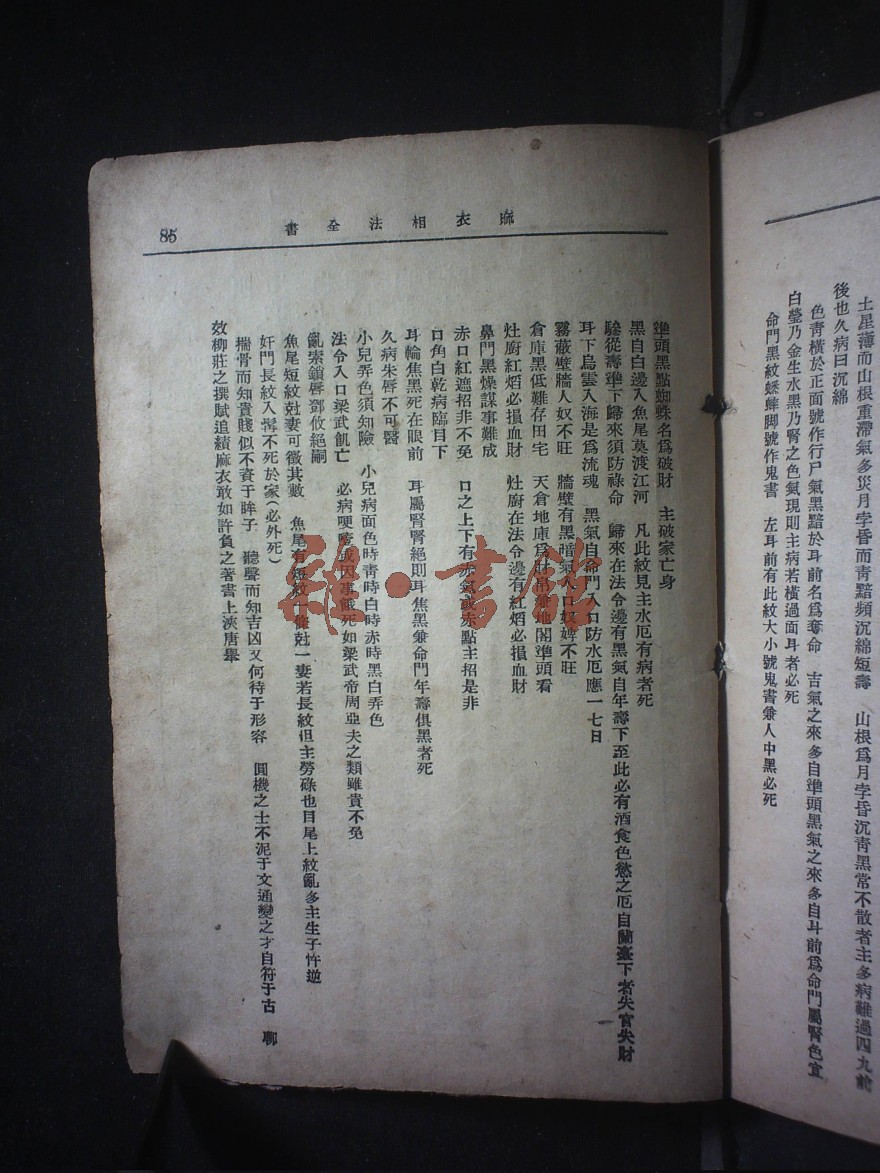 土星薄而山根重滯氣多災月孛昏而靑黯頻沉綿短壽　山根爲月孛昏沉靑黑常不散者主多病難過四九前
後也久病曰沉綿
色靑橫於正面號作行尸氣黑黯於耳前名爲奪命　吉氣之來多自準頭黑氣之來多自耳前爲命門屬腎色宜
白瑩乃金生水黑乃腎之色氣現則主病若橫過面耳者必死
命門黑紋蟋蟀脚號作鬼書　左耳前有此紋大小號鬼書兼人中黑必死
麻衣相法全書
85
準頭黑點蜘蛛名爲破財　主破家亡身
黑自白邊入魚尾莫渡江河　凡此紋見主水厄有病者死
驗從壽準下歸來須防祿命　歸來在法令邊有黑氣自年壽下至此必有酒食色慾之厄自蘭臺下者失官失財
耳下烏雲入海是爲流魂　黑氣自命門入口防水厄應一七日
霧蔽壁牆人奴不旺　牆壁有黑暗氣人口奴婢不旺
倉庫黑低難存田宅　天倉地庫爲財帛兼地閣準頭看
灶廚紅焰必損血財　灶廚在法令邊有紅焰必損血財
鼻門黑燥謀事難成
赤口紅遮招非不免　口之上下有赤氣或赤點主招是非
口角白乾病臨目下
耳輪焦黑死在眼前　耳屬腎腎絕則耳焦黑兼命門年壽俱黑者死
久病朱唇不可醫
小兒弄色須知險　小兒病面色時靑時白時赤時黑白弄色
法令入口梁武飢亡　必病哽噎或因事餓死如梁武帝周亞夫之類雖貴不免
亂索鎖唇鄧攸絕嗣
魚尾短紋尅妻可徵其數　魚尾有短紋一條尅一妻若長紋但主勞碌也目尾上紋亂多主生子忤逆
奸門長紋入鬂不死於家(必外死)
揣骨而知貴賤似不資于眸子　聽聲而知吉凶又何待于形容　圓機之士不泥于文通變之才自符于古　聊
效柳莊之撰賦追績麻衣敢如許負之著書上浹唐舉
雜·書館